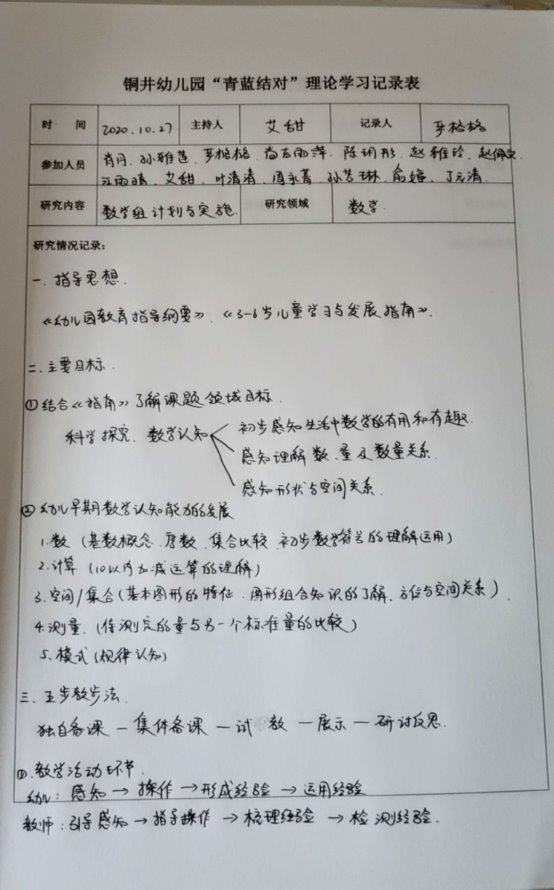 铜井幼儿园“青蓝结对”理论学习记录表
时 间 2020.10.27 主持人 艾甜 记录人 格格
参加人员 肖月 孙雅莲 格格 雨萍 陈玥彤 赵雅玲 赵
江雨晴 艾甜 叶清清 周永菁 孙艺琳 俞婷 丁元清
研究内容 数学组计划与实施 研究领域 数学
研究情况记录:
一.指导思想.
《幼儿园教育指导纲要》.《3-6岁儿童学习与发展指南》.
二.主要目标.
①结合《指南》了解课题领域目标.
科学探究.数学认知 初步感知生活中数学的有用和有趣.
感知理解数、量及数量关系.
感知形状与空间关系.
②幼儿早期数学认知能力的发展
1.数(基数概念.序数.集合比较.初步数学符号的理解运用)
2.计算(10以内加减运算的理解)
3.空间/集合(基本图形的特征.图形组合知识的了解、方位与空间关系).
4.测量.(待测定的量与另一个标准量的比较)
5.模式(规律认知)
三.五步教步法.
独自备课—集体备课—试教—展示—研讨反思.
四.教学活动环节.
幼儿:感知→操作→形成经验→运用经验
教师:引导感知→指导操作→梳理经验→检测经验.